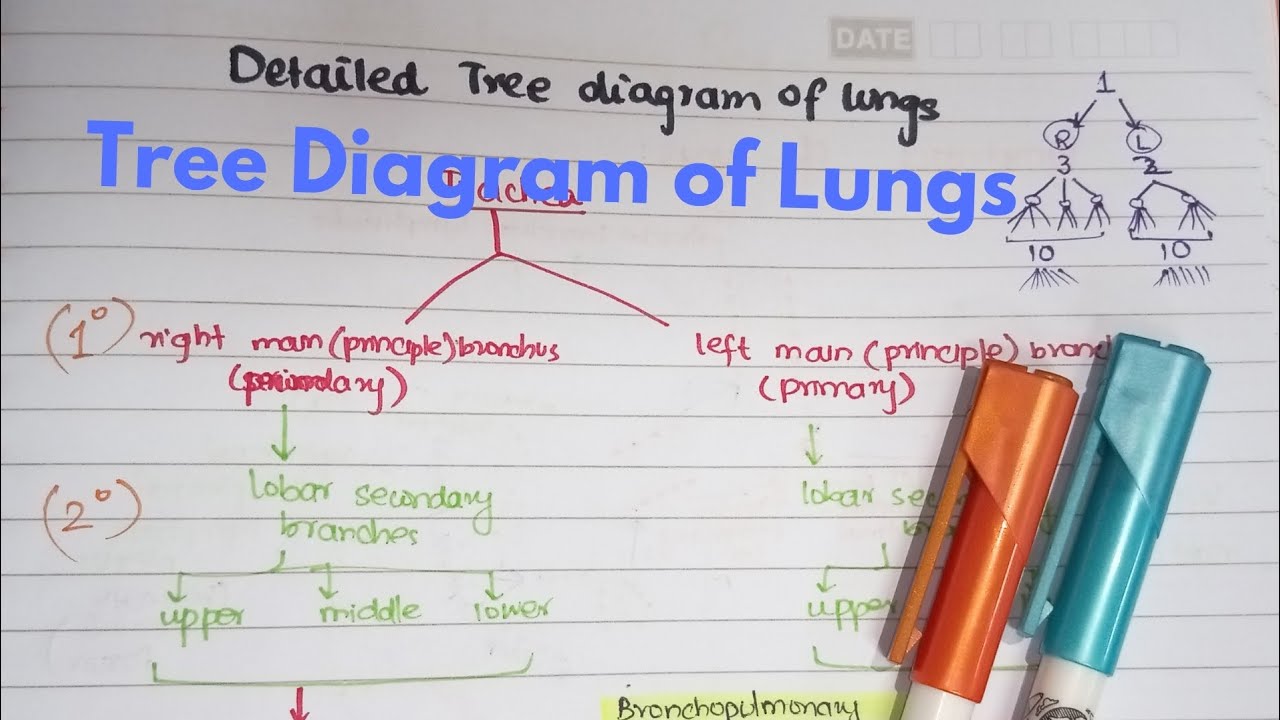 DATE
Detailed Tree diagram of lungs
Tree Diagram of Lungs
1
R L
3 2
10 10
Trachea
(1°) right main (principle) bronchus
left main (principle) bronch
(primary)
(2°) lobar secondary
branches
lobar sec
upper middle lower
upper
Bronchopulmonary